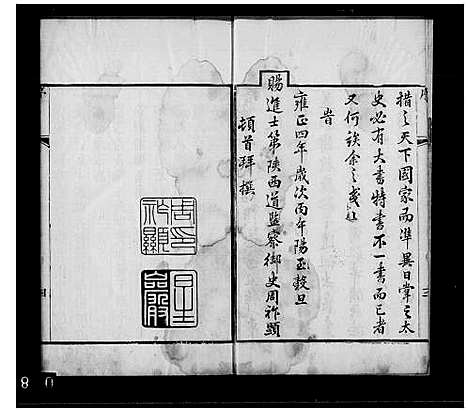 措之天下國家而準異日掌之太
史必有大書特書不一書而已者
又何俟余之贅
旹
雍正四年歲次丙午陽正穀旦
賜進士第陝西道監察御史周祚顯
頓首拜撰
周祚顯印
序
三
8 0